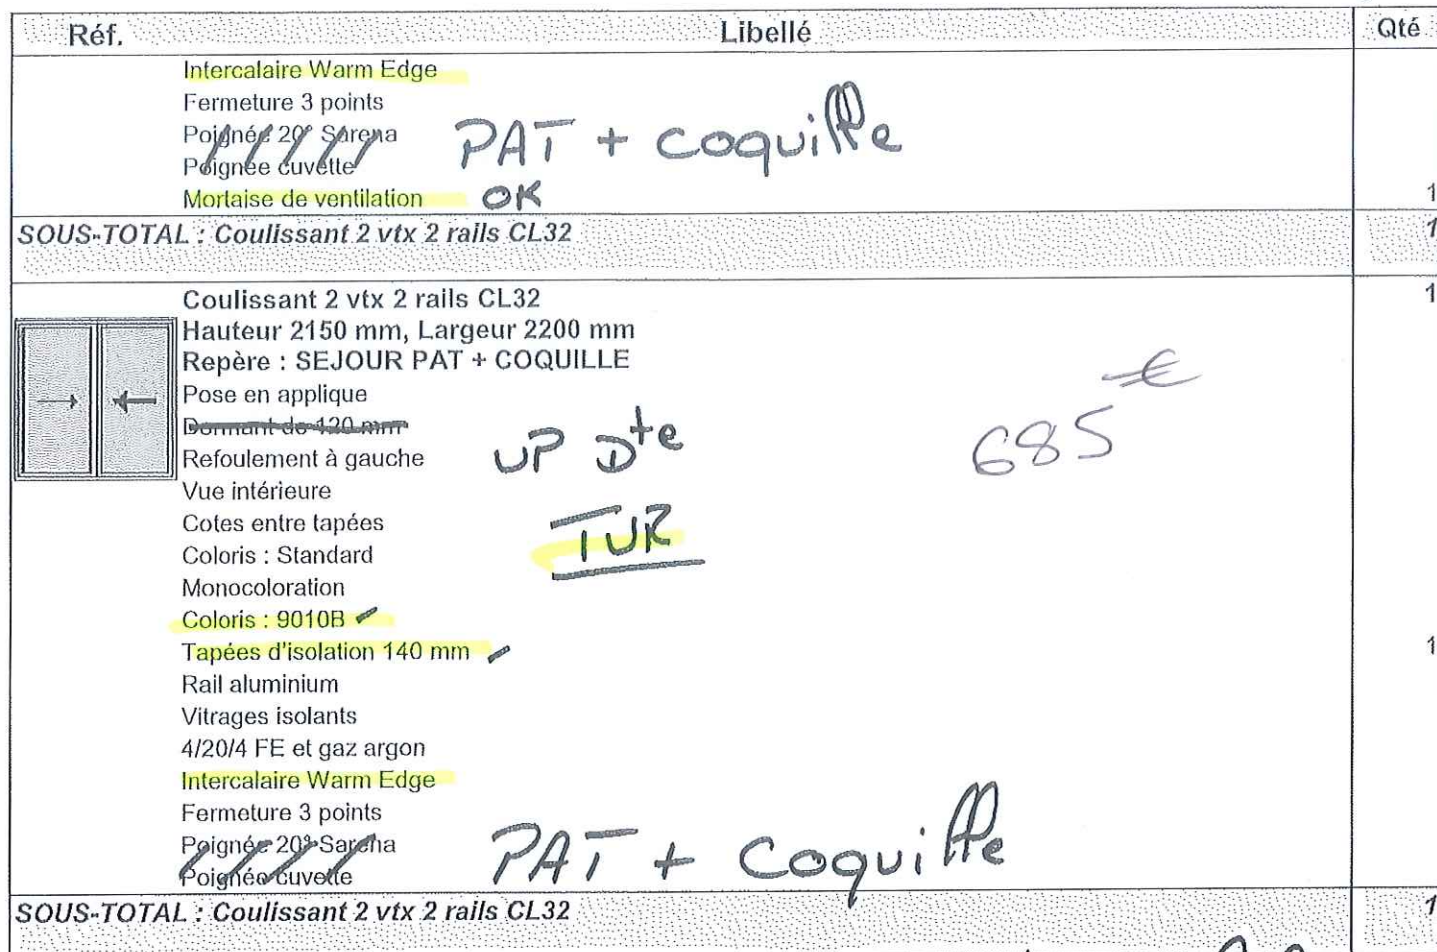 Réf. Libellé Qté
Intercalaire Warm Edge
Fermeture 3 points
Poignée 20° Sarena
PAT + coquille
Poignée cuvette
Mortaise de ventilation OK 1
SOUS-TOTAL : Coulissant 2 vtx 2 rails CL32 1
Coulissant 2 vtx 2 rails CL32 1
Hauteur 2150 mm, Largeur 2200 mm
Repère : SEJOUR PAT + COQUILLE
Pose en applique
Dormant de 120 mm
685 €
Refoulement à gauche UP Dte
Vue intérieure
Cotes entre tapées TUR
Coloris : Standard
Monocoloration
Coloris : 9010B
Tapées d'isolation 140 mm 1
Rail aluminium
Vitrages isolants
4/20/4 FE et gaz argon
Intercalaire Warm Edge
Fermeture 3 points
Poignée 20° Sarena PAT + Coquille
Poignée cuvette
SOUS-TOTAL : Coulissant 2 vtx 2 rails CL32 1